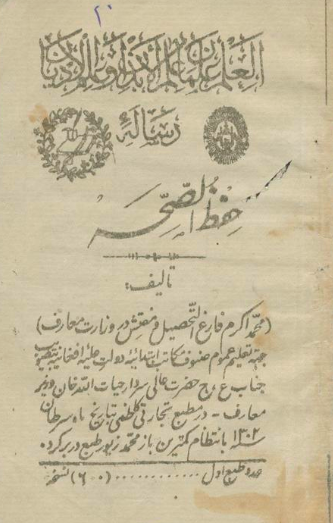 ۲۰
العلم علمان علم الأبدان وعلم الأديان
رسالهٔ
حفظ الصحه
تالیف:
(محمد اکرم فارغ التحصیل و مفتش در وزارت معارف)
جهته تعلیم عموم صنوف مکاتب ابتدائیهٔ دولت علیهٔ افغانیه بتصویب
جناب ع، ج حضرت عالی سردار حیات الله خان وزیر
معارف - در مطبع تجارتی کابل تاریخ ماه سرطان
سنه ۱۳۰۲ بانتظام کمترین باز محمد زیور طبع در بر کرد
عدد طبع اول ............ (۶۰۰) نسخه